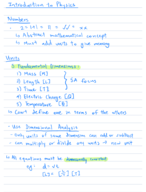 Introduction to Physics
Numbers
- 2 = |2| = II =
↳ Abstract mathematical concept
↳ Must add units to give meaning
Units
5 Fundamental Dimensions:
1) Mass [M]
2) Length [L]
3) Time [T]
4) Electric Charge [Q]
5) Temperature [θ]
↳ Can't define one in terms of the others
- Use Dimensional Analysis
- only units of same dimension can add or subtract
- can multiply or divide any units → new unit
↳ All equations must be dimensionally consistent
eg: